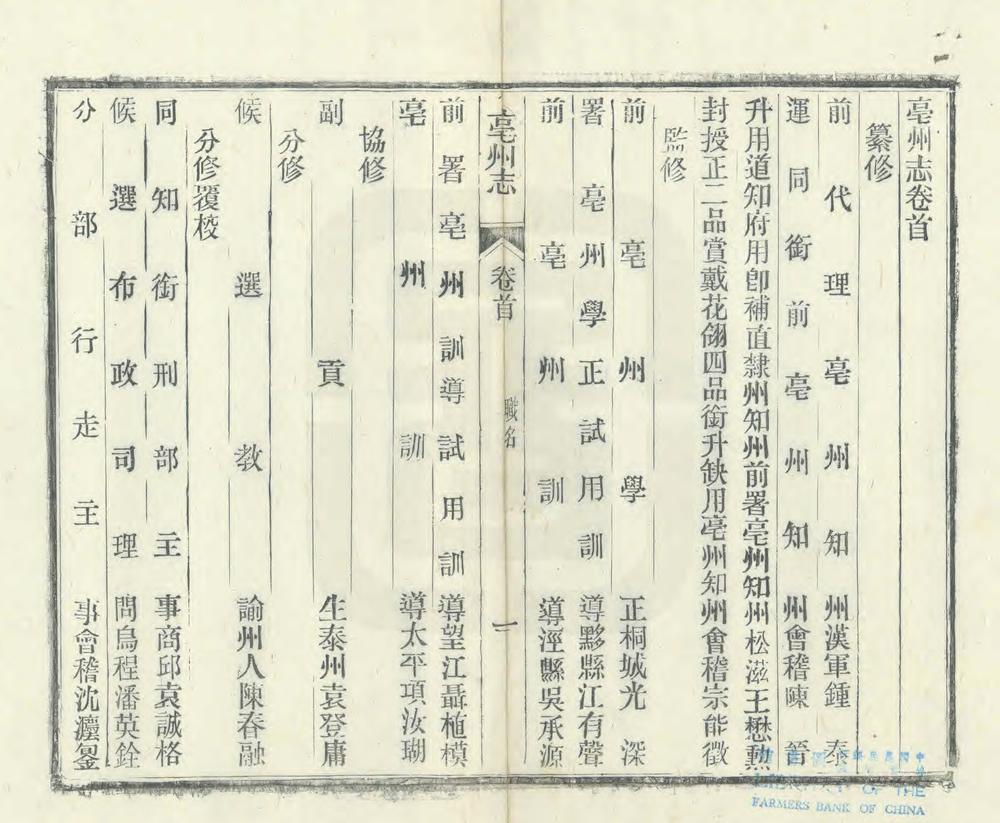 亳州志卷首
纂修
前代理亳州知州漢軍鍾泰
運同銜前亳州知州會稽陳晉
升用道知府用卽補直隸州知州前署亳州知州松滋王懋勲
封授正二品賞戴花翎四品銜升缺用亳州知州會稽宗能徵
監修
前亳州學正桐城光深
署亳州學正試用訓導黟縣江有聲
前亳州訓導涇縣吳承源
亳州志 卷首 職名 一
前署亳州訓導試用訓導望江聶植模
亳州訓導太平項汝瑚
協修
副貢生泰州袁登庸
分修
候選教諭州人陳春融
分修覆校
同知銜刑部主事商邱袁誠格
候選布政司理問烏程潘英銓
分部行走主事會稽沈灋
OF THE
FARMERS BANK OF CHINA